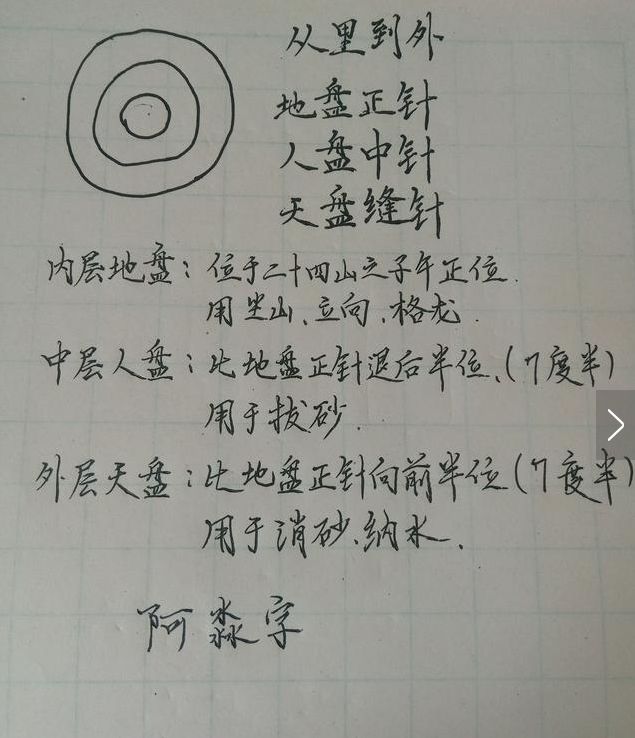 从里到外
地盘正针
人盘中针
天盘缝针
内层地盘：位于二十四山之子午正位.
用坐山、立向、格龙.
中层人盘：比地盘正针退后半位、(7度半)
用于拔砂.
外层天盘：比地盘正针向前半位(7度半)
用于消砂、纳水.
阿淼字